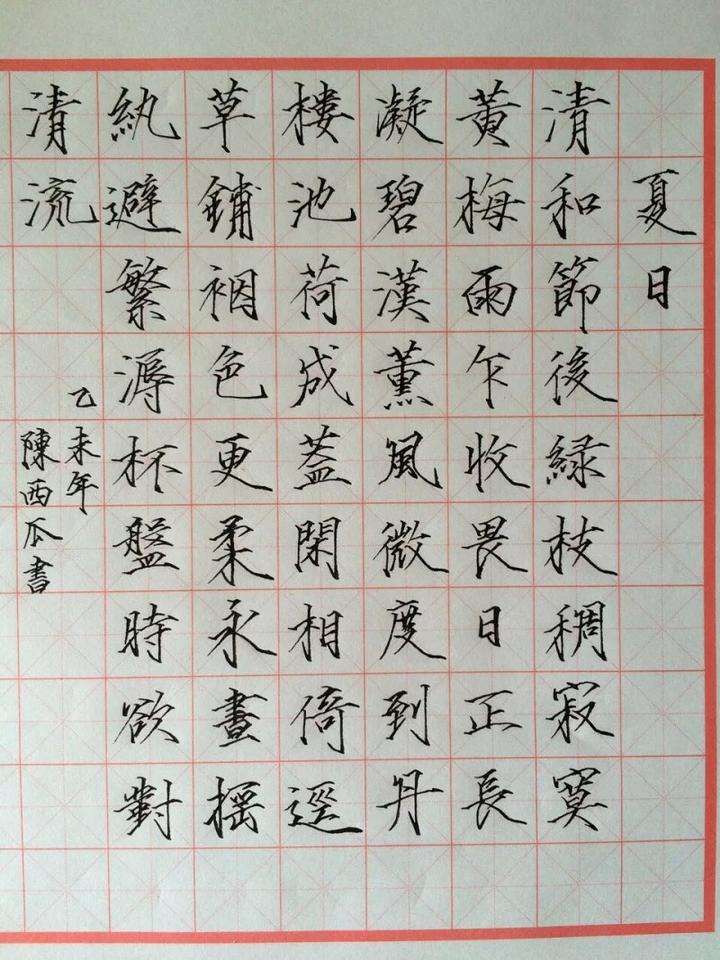 夏日
清和節後緑枝稠寂寞
黄梅雨乍收畏日正長
凝碧漢薰風微度到丹
樓池荷成蓋閑相倚逕
草鋪裀色更柔永晝搖
紈避繁溽杯盤時欲對
清流
乙未年
陳西瓜書